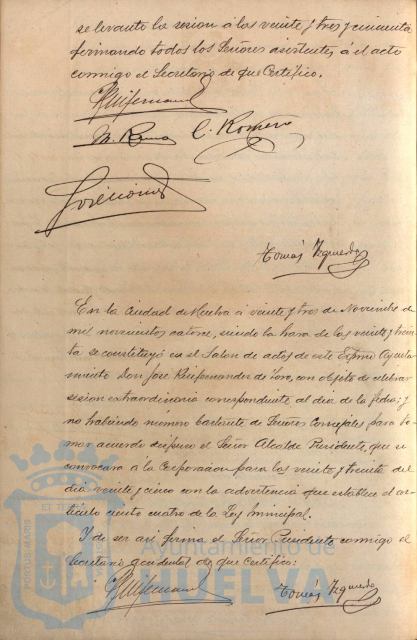 se levanto la sesion á las veinte y tres y cincuenta
firmando todos los Señores asistentes, á el acto
conmigo el Secretario de que Certifico.
C. Romero
Tomás Izquierdo
En la Ciudad de Huelva á veinte y tres de Noviembre de
mil novecientos catorce, siendo la hora de las veinte y trein
ta se constituyó en el Salon de actos de este Excmo Ayunta
miento Don José de Toro, con objeto de celebrar
sesion extraordinaria correspondiente al dia de la fecha; y
no habiendo numero bastante de Señores Concejales para to
mar acuerdo dispuso el Señor Alcalde Presidente, que se
convocara á la Corporacion para las veinte y treinta del
dia veinte y cinco con la advertencia que establece el ar
ticulo ciento cuatro de la Ley Municipal.
Y de ser asi firma el Señor Presidente conmigo el
Secretario accidental de que Certifico:
Tomás Izquierdo
Ayuntamiento de
HUELVA